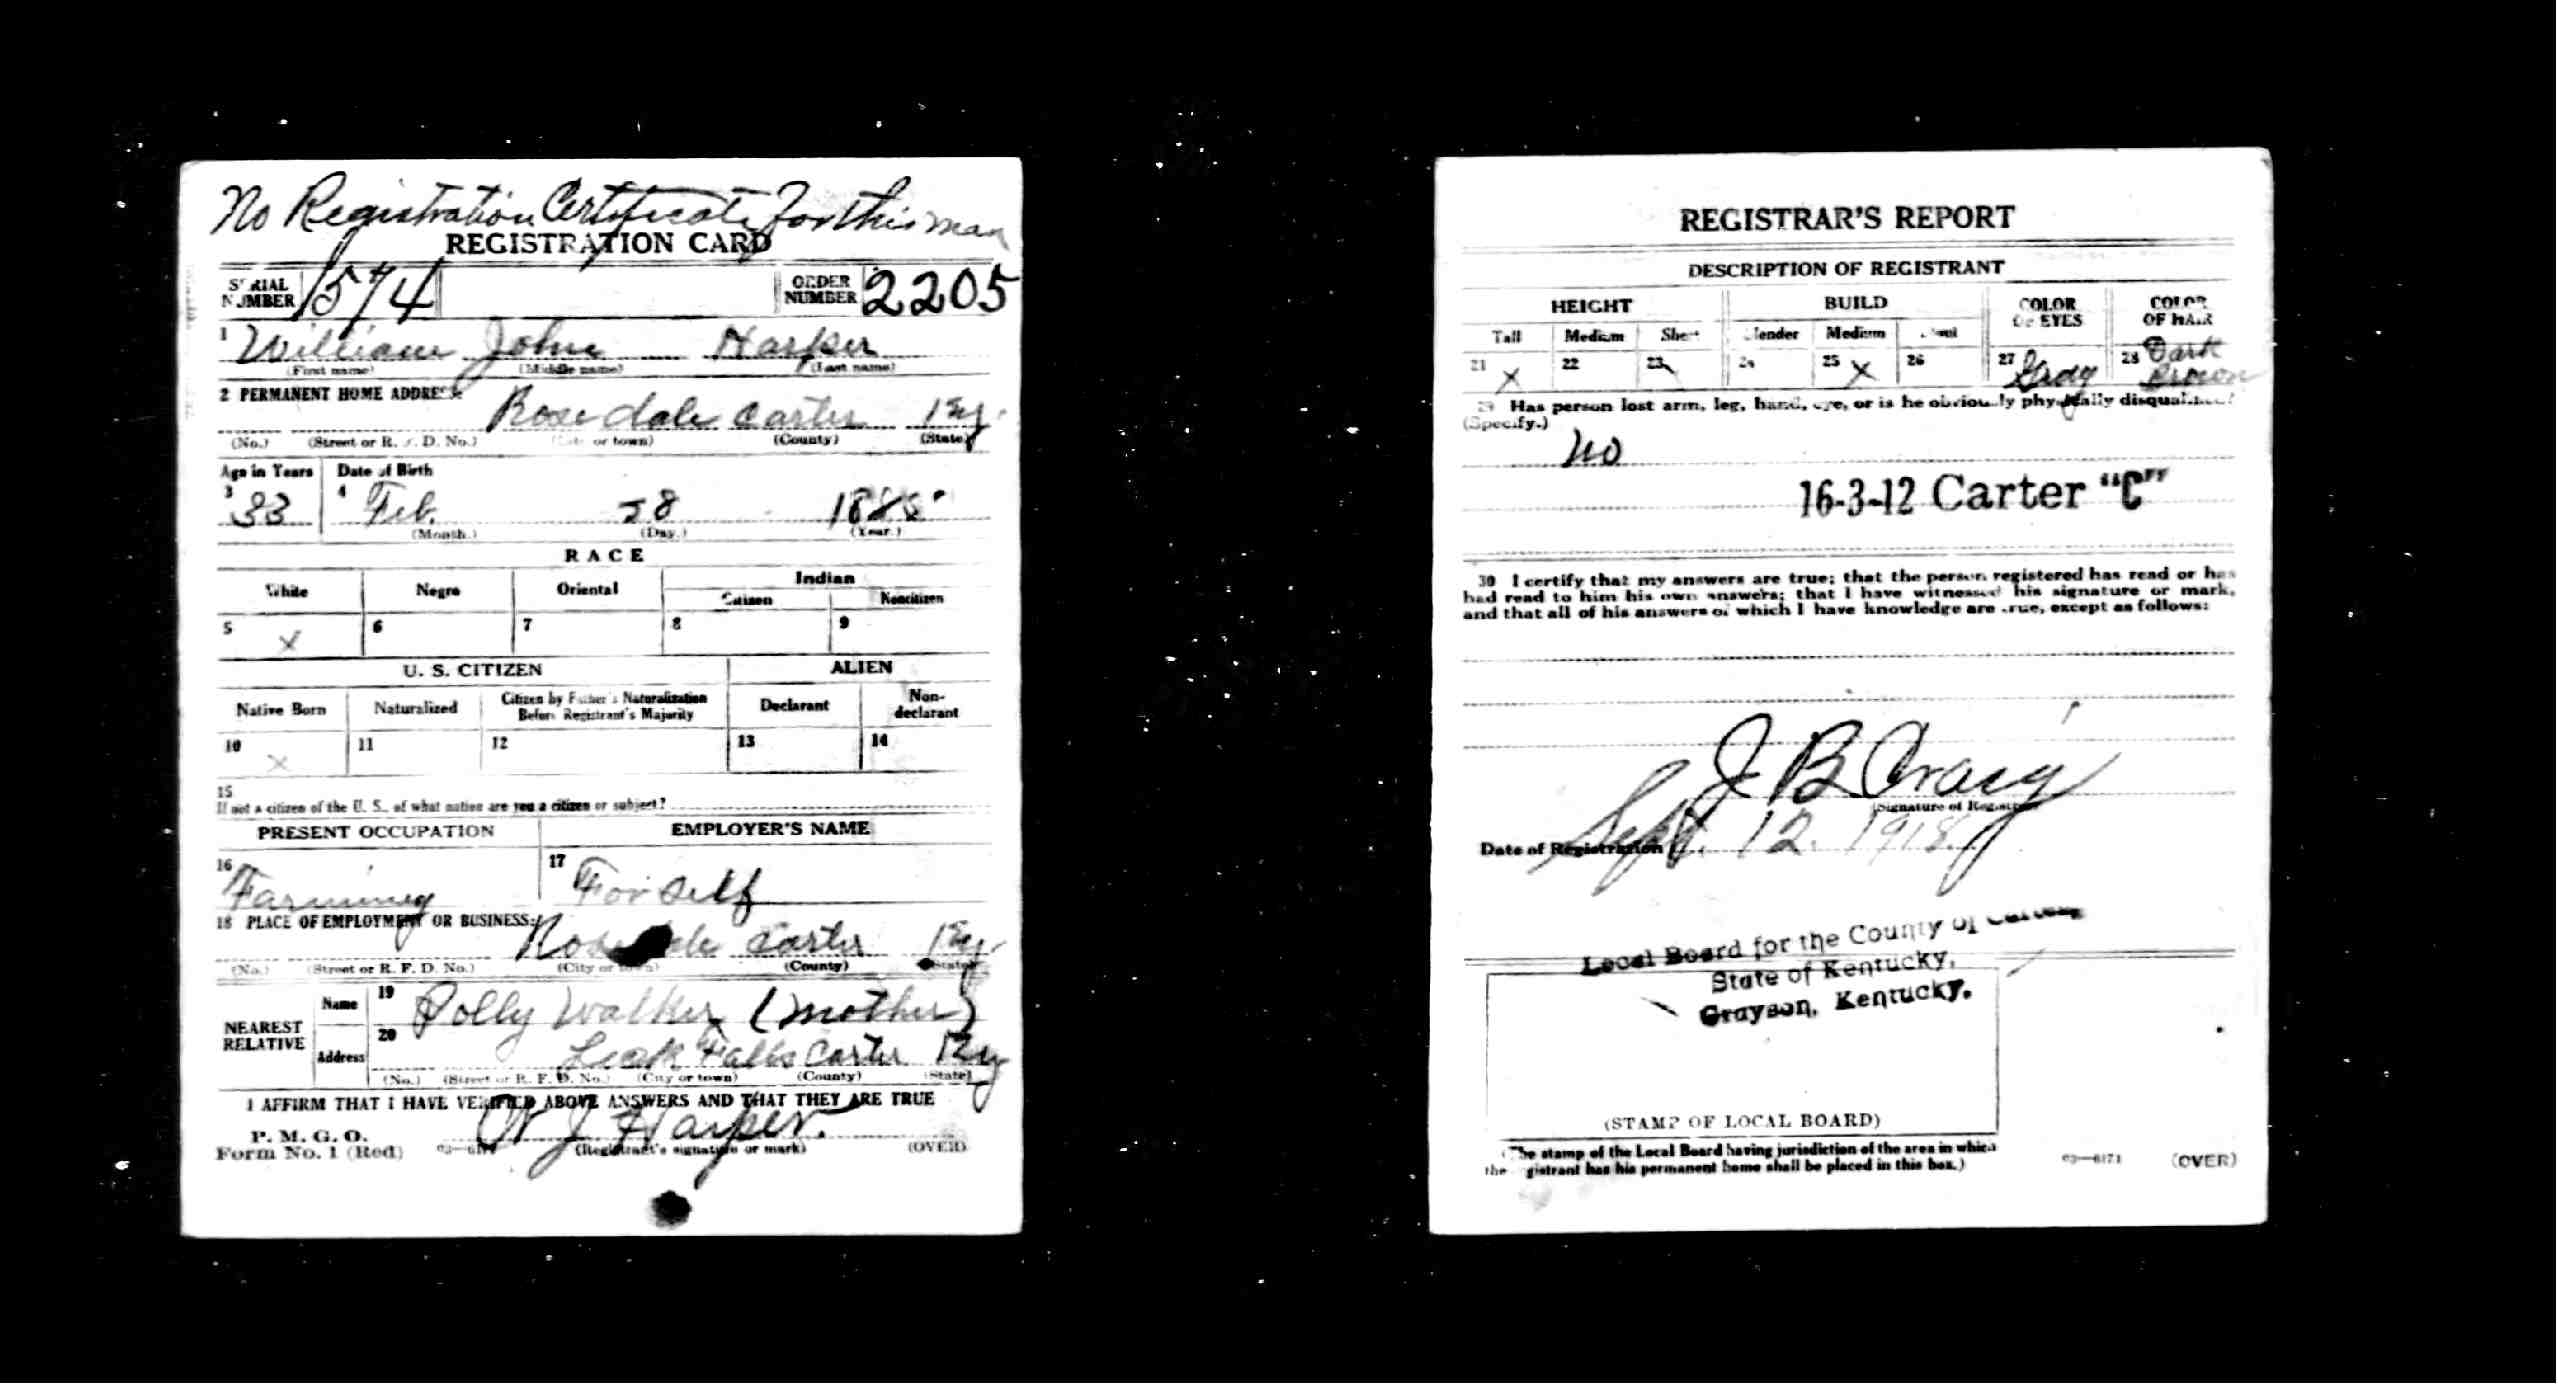 No Registration Certificate For this man
REGISTRATION CARD
SERIAL NUMBER 1574 ORDER NUMBER 2205
1 William John Harper
(First name) (Middle name) (Last name)
2 PERMANENT HOME ADDRESS:
Rosedale Carter Ky.
(No.) (Street or R. F. D. No.) (City or town) (County) (State)
Age in Years Date of Birth
3 33 4 Feb. 28 1885
(Month.) (Day.) (Year.)
RACE
White Negro Oriental Indian
Citizen Noncitizen
5 X 6 7 8 9
U. S. CITIZEN ALIEN
Native Born Naturalized Citizen by Father's Naturalization Before Registrant's Majority Declarant Non-declarant
10 X 11 12 13 14
15
If not a citizen of the U. S., of what nation are you a citizen or subject?
PRESENT OCCUPATION EMPLOYER'S NAME
16 Farming 17 For self
18 PLACE OF EMPLOYMENT OR BUSINESS:
Rosedale Carter Ky.
(No.) (Street or R. F. D. No.) (City or town) (County) (State)
NEAREST RELATIVE
Name 19 Polly Walker (mother)
Address 20 Falls Carter Ky
(No.) (Street or R. F. D. No.) (City or town) (County) (State)
I AFFIRM THAT I HAVE VERIFIED ABOVE ANSWERS AND THAT THEY ARE TRUE
P. M. G. O.
Form No. 1 (Red) W J Harper.
(Registrant's signature or mark) (OVER)
REGISTRAR'S REPORT
DESCRIPTION OF REGISTRANT
HEIGHT BUILD COLOR OF EYES COLOR OF HAIR
Tall Medium Short Slender Medium Stout
21 X 22 23 24 25 X 26 27 28 Dark Brown
29 Has person lost arm, leg, hand, eye, or is he obviously physically disqualified?
(Specify.)
no
16-3-12 Carter "C"
30 I certify that my answers are true; that the person registered has read or has
had read to him his own answers; that I have witnessed his signature or mark,
and that all of his answers of which I have knowledge are true, except as follows:
J B Craig
(Signature of Registrar)
Date of Registration Sept. 12. 1918
Local Board for the County of Carter,
State of Kentucky,
Grayson, Kentucky.
(STAMP OF LOCAL BOARD)
(The stamp of the Local Board having jurisdiction of the area in which
the registrant has his permanent home shall be placed in this box.)
03—6171 (OVER)